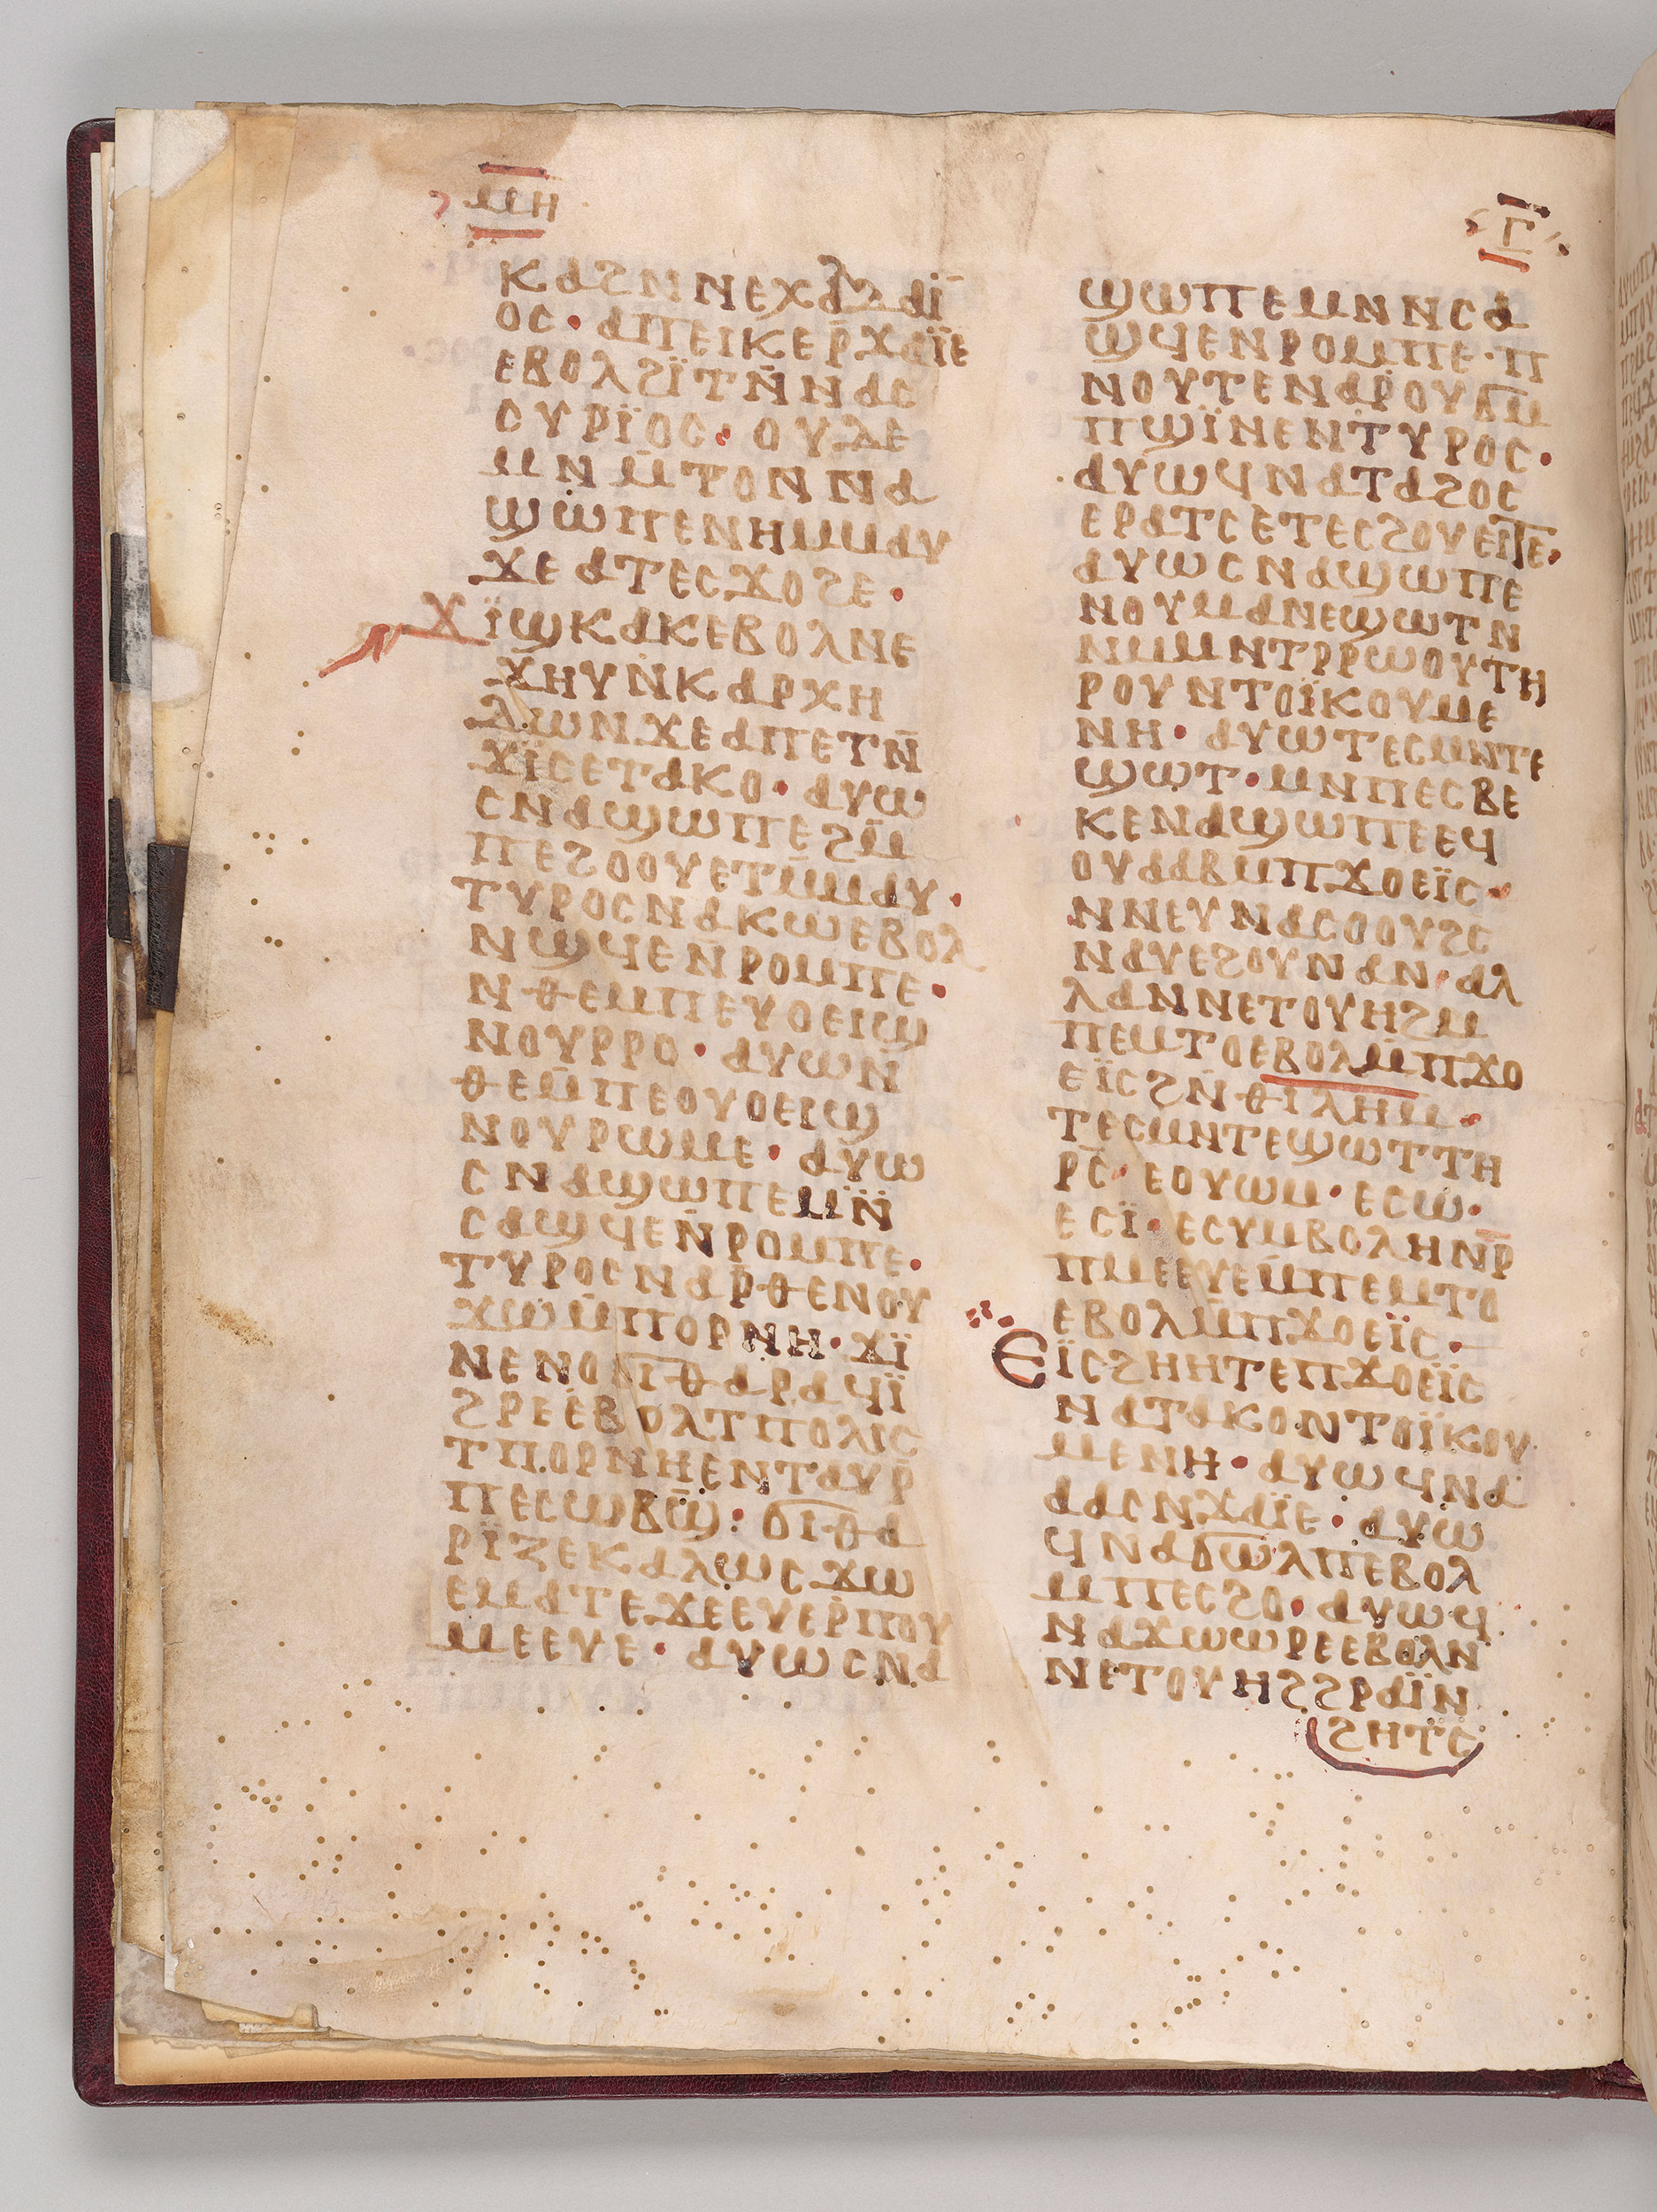 ⲙⲏ
ⲅ
ⲕⲁϩⲛⲛⲉⲭⲁⲗⲇⲁⲓ̈
ⲟⲥ· ⲁⲡⲉⲓⲕⲉⲣϫⲁⲓ̈ⲉ
ⲉⲃⲟⲗϩⲓ̈ⲧⲛ̄ⲛⲁⲥ
ⲥⲩⲣⲓ̈ⲟⲥ· ⲟⲩⲇⲉ
ⲙⲛⲙ̄ⲧⲟⲛⲛⲁ
ϣⲱⲡⲉⲛⲏⲙⲙⲁⲩ
ϫⲉⲁⲧⲉⲥϫⲟϩⲉ·
ϫⲓ̈ϣⲕⲁⲕⲉⲃⲟⲗⲛⲉ
ϫⲏⲩⲛ̄ⲕⲁⲣⲭⲏ
ⲇⲱⲛϫⲉⲁⲡⲉⲧⲛ̄
ϫⲓ̈ⲥⲉⲧⲁⲕⲟ· ⲁⲩⲱ
ⲥⲛⲁϣⲱⲡⲉϩⲙ̄
ⲡⲉϩⲟⲟⲩⲉⲧⲙ̄ⲙⲁⲩ·
ⲧⲩⲣⲟⲥⲛⲁⲕⲱⲉⲃⲟⲗ
ⲛϣϥⲉⲛ̄ⲣⲟⲙⲡⲉ·
ⲛⲑⲉⲙⲡⲉⲩⲟⲉⲓϣ
ⲛⲟⲩⲣⲣⲟ· ⲁⲩⲱⲛ̄
ⲑⲉⲙ̄ⲡⲉⲟⲩⲟⲉⲓϣ
ⲛⲟⲩⲣⲱⲙⲉ· ⲁⲩⲱ
ⲥⲛⲁϣⲱⲡⲉⲙⲛ̈
ⲥⲁϣϥⲉⲛ̄ⲣⲟⲙⲡⲉ·
ⲧⲩⲣⲟⲥⲛⲁⲣ̄ⲑⲉⲛⲟⲩ
ϫⲱⲙ̄ⲡⲟⲣⲛⲏ· ϫⲓ̈
ⲛⲉⲛⲟϭⲓⲑⲁⲣⲁϥⲓ̈
ϩⲣⲉⲉⲃⲟⲗⲧⲡⲟⲗⲓⲥ
ⲧⲡⲟⲣⲛⲏⲉⲛⲧⲁⲩⲣ̄
ⲡⲉⲥⲱⲃϣ̄: ϭⲓⲑⲁ
ⲣⲓ̈ⲍⲉⲕⲁⲗⲱⲥϫⲱ
ⲉⲙⲁⲧⲉϫⲉⲉⲩⲉⲣ̄ⲡⲟⲩ
ⲙⲉⲉⲩⲉ· ⲁⲩⲱⲥⲛⲁ
ϣⲱⲡⲉⲙⲛⲛⲥⲁ
ϣ̄ϥⲉⲛⲣⲟⲙⲡⲉ· ⲡ
ⲛⲟⲩⲧⲉⲛⲁⲣ̄ⲟⲩϭⲙ̄
ⲡϣⲓ̈ⲛⲉⲛ̄ⲧⲩⲣⲟⲥ·
ⲁⲩⲱϥⲛⲁⲧⲁϩⲟⲥ
ⲉⲣⲁⲧⲥⲉⲧⲉⲥϩⲟⲩⲉⲓⲧⲉ·
ⲁⲩⲱⲥⲛⲁϣⲱⲡⲉ
ⲛⲟⲩⲙⲁⲛⲉϣⲱⲧⲛ
ⲛⲙⲙⲛⲧⲣⲣⲱⲟⲩⲧⲏ
ⲣⲟⲩⲛⲧⲟⲓ̈ⲕⲟⲩⲙⲉ
ⲛⲏ· ⲁⲩⲱⲧⲉⲥⲙⲛⲧⲉ
ϣⲱⲧ· ⲙⲛⲡⲉⲥⲃⲉ
ⲕⲉⲛⲁϣⲱⲡⲉⲉϥ
ⲟⲩⲁⲁⲃⲙⲡϫⲟⲉⲓ̈ⲥ·
ⲛⲛⲉⲩⲛⲁⲥⲟⲟⲩϩⲥ
ⲛⲁⲩⲉϩⲟⲩⲛⲁⲛ· ⲁⲗ
ⲗⲁⲛⲛⲉⲧⲟⲩⲏϩⲙ
ⲡⲉⲙⲧⲟⲉⲃⲟⲗⲙ̄ⲡϫⲟ
ⲉⲓ̈ⲥϩⲛ̄ⲑⲓⲗⲏⲙ·
ⲧⲉⲥⲙⲛⲧⲉϣⲱⲧⲧⲏ
ⲣⲥ̄· ⲉⲟⲩⲱⲙ· ⲉⲥⲱ·
ⲉⲥⲓ̈· ⲉⲥⲩⲙⲃⲟⲗⲏⲛⲣ̄
ⲡⲙⲉⲉⲩⲉⲙ̄ⲡⲉⲙⲧⲟ
ⲉⲃⲟⲗⲙ̄ⲡϫⲟⲉⲓ̈ⲥ·
ⲉⲓ̈ⲥϩⲏⲏⲧⲉⲡϫⲟⲉⲓ̈ⲥ
ⲛⲁⲧⲁⲕⲟⲛⲧⲟⲓ̈ⲕⲟⲩ
ⲙⲉⲛⲏ· ⲁⲩⲱϥⲛⲁ
ⲁⲁⲥⲛϫⲁⲓ̈ⲉ· ⲁⲩⲱ
ϥⲛⲁϭⲱⲗⲡⲉⲃⲟⲗ
ⲙⲡⲉⲥϩⲟ· ⲁⲩⲱϥ
ⲛⲁϫⲱⲱⲣⲉⲉⲃⲟⲗⲛ
ⲛⲉⲧⲟⲩⲏϩϩⲣⲁⲓ̈ⲛ
ϩⲏⲧⲥ